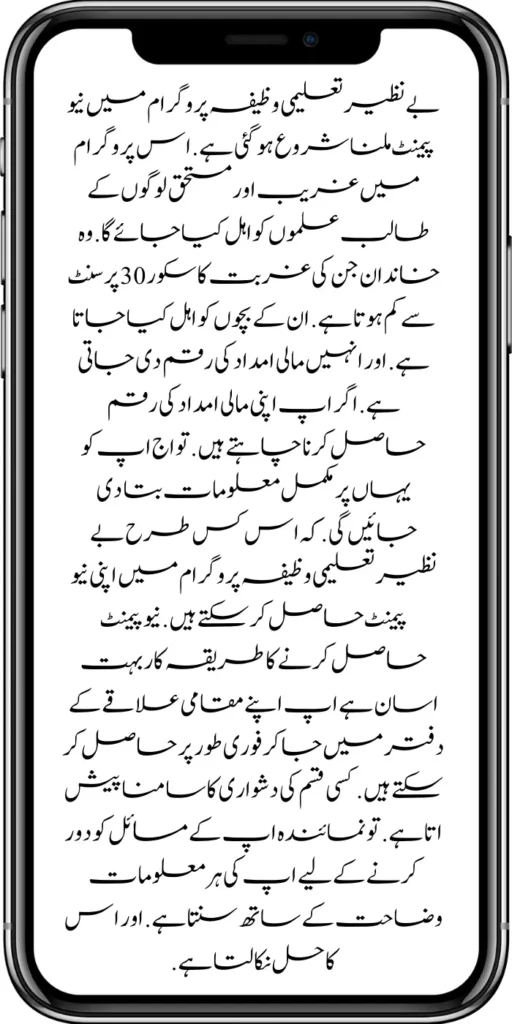 بے نظیر تعلیمی وظیفہ پروگرام میں نیو
پیمنٹ ملنا شروع ہو گئی ہے. اس پروگرام
میں غریب اور مستحق لوگوں کے
طالب علموں کو اہل کیا جائے گا. وہ
خاندان جن کی غربت کا سکور 30 پرسنٹ
سے کم ہوتا ہے. ان کے بچوں کو اہل کیا جاتا
ہے. اور انہیں مالی امداد کی رقم دی جاتی
ہے. اگر اپ اپنی مالی امداد کی رقم
حاصل کرنا چاہتے ہیں. تو اج اپ کو
یہاں پر مکمل معلومات بتا دی
جائیں گی. کہ اس کس طرح بے
نظیر تعلیمی وظیفہ پروگرام میں اپنی نیو
پیمنٹ حاصل کر سکتے ہیں. نیو پیمنٹ
حاصل کرنے کا طریقہ کار بہت
اسان ہے اپ اپنے مقامی علاقے کے
دفتر میں جا کر فوری طور پر حاصل کر
سکتے ہیں. کسی قسم کی دشواری کا سامنا پیش
اتا ہے. تو نمائندہ اپ کے مسائل کو دور
کرنے کے لیے اپ کی ہر معلومات
وضاحت کے ساتھ سنتا ہے. اور اس
کا حل نکالتا ہے.